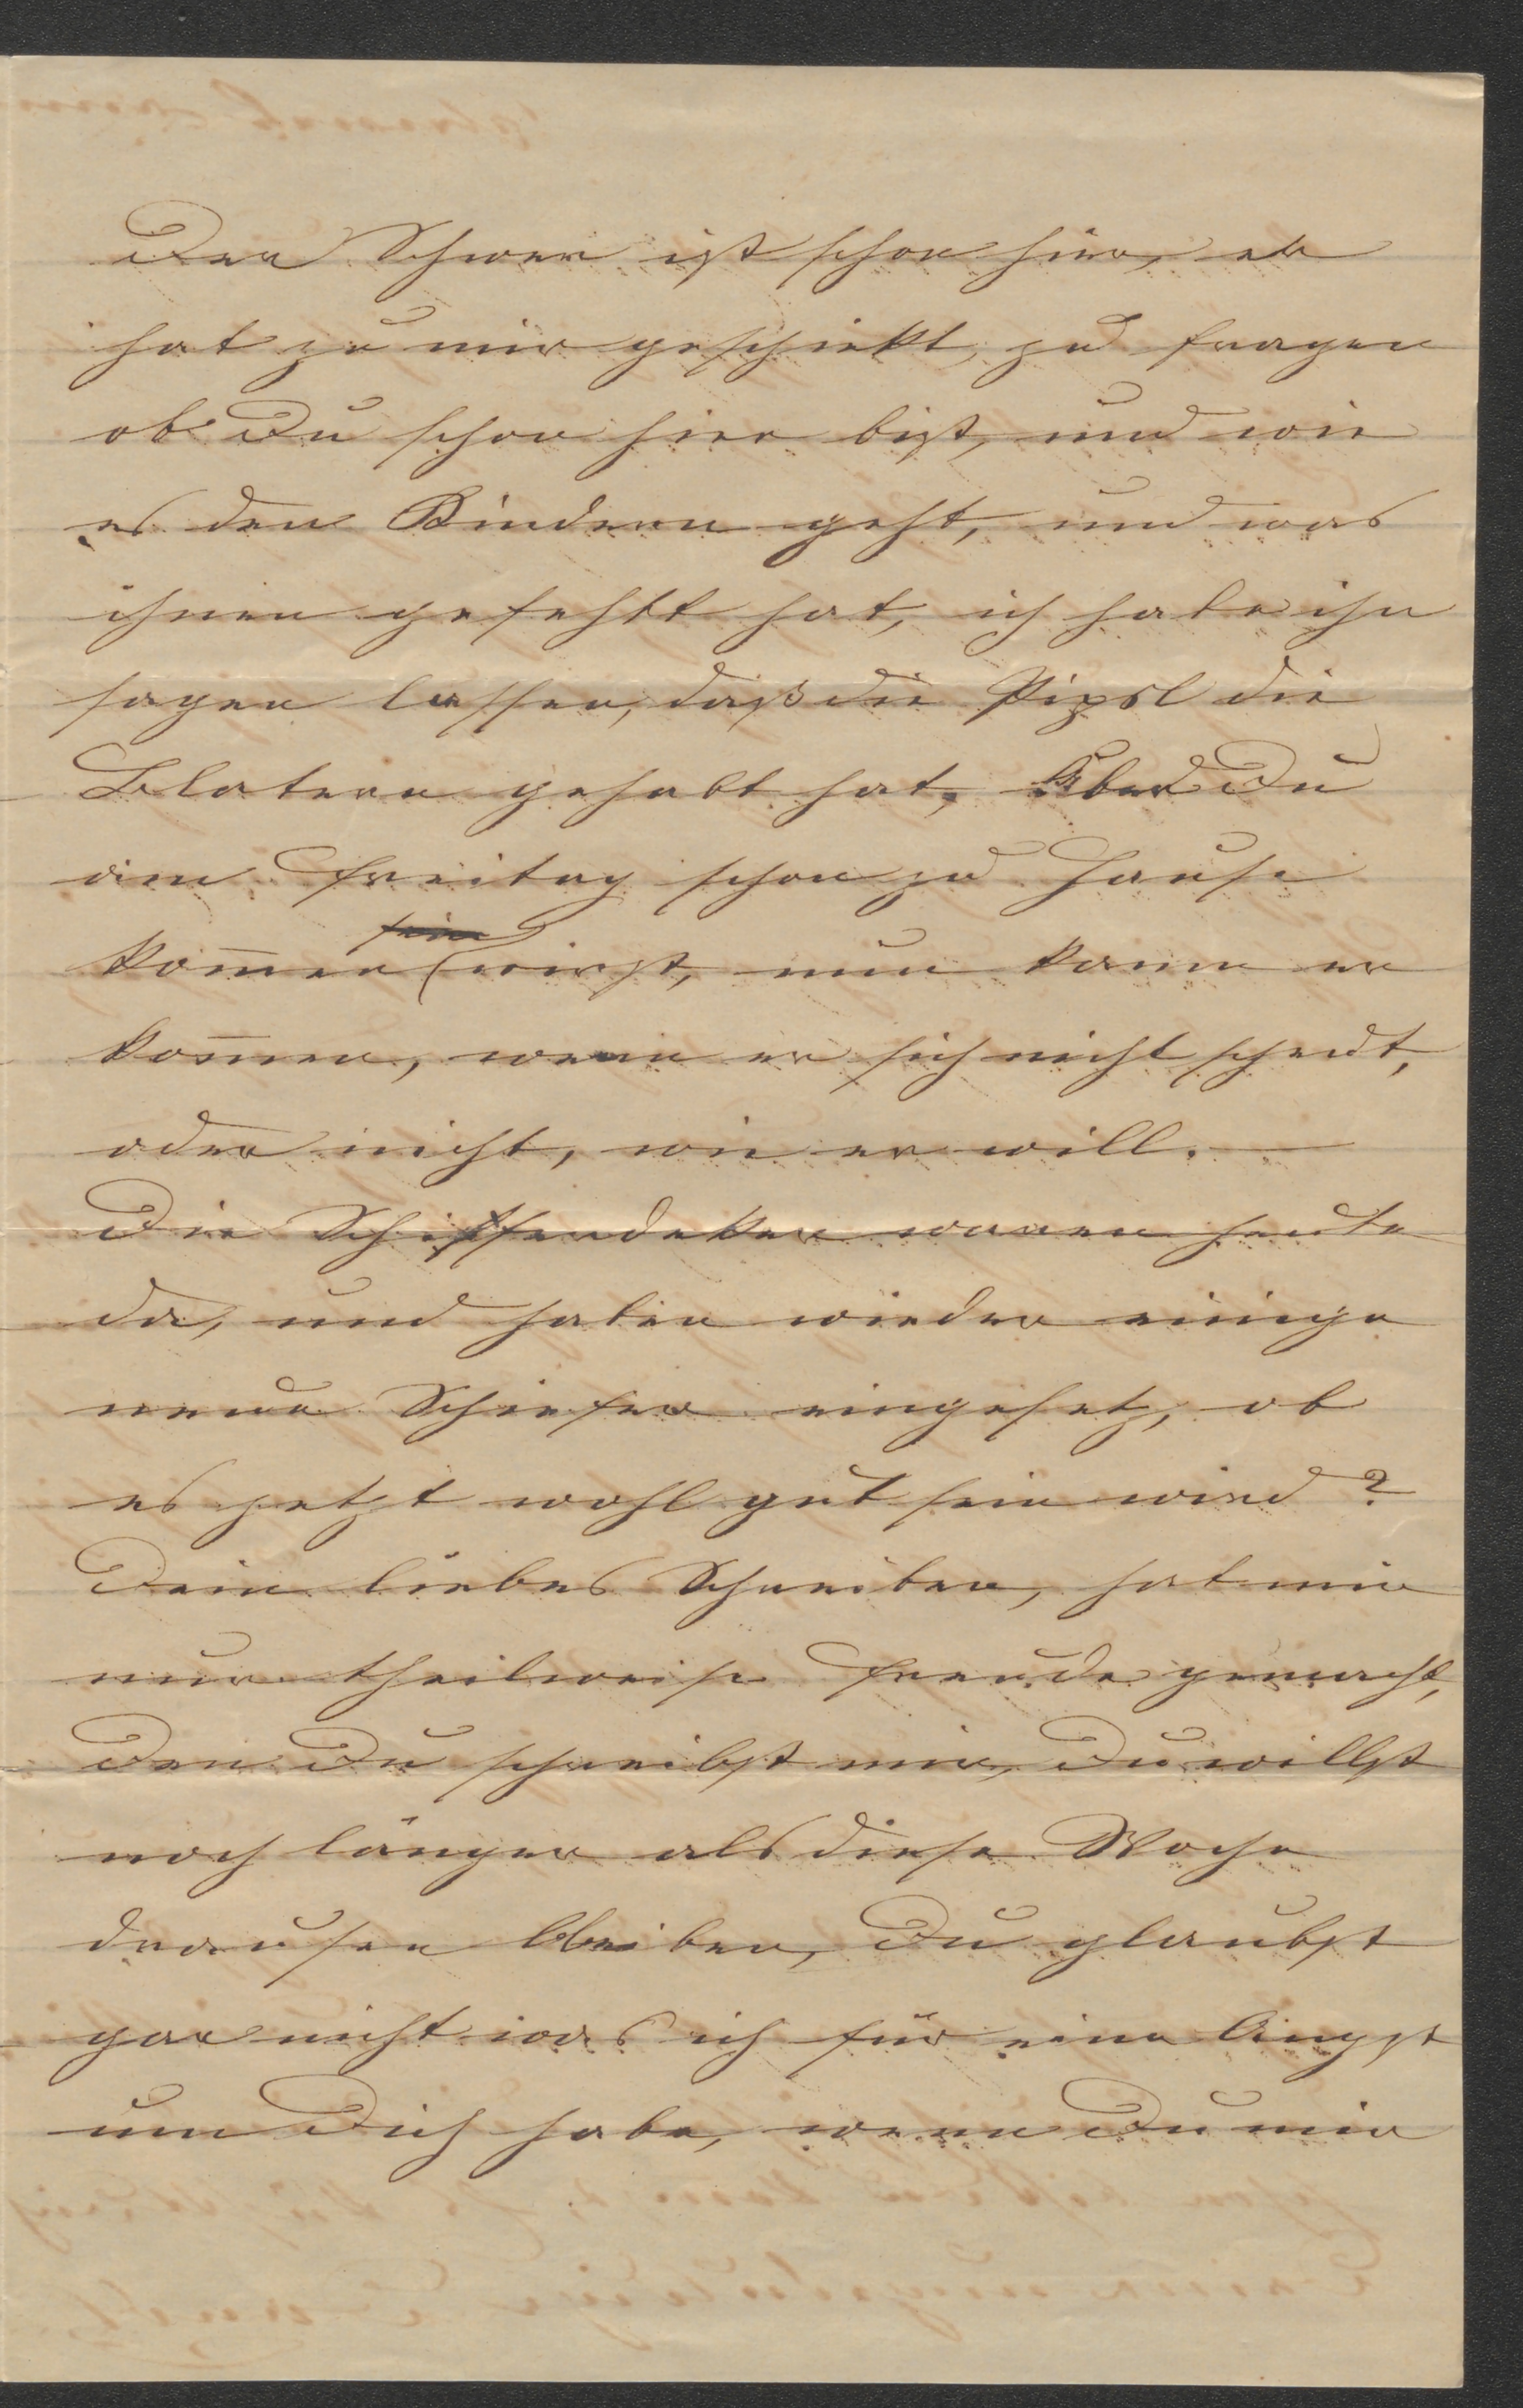 Der Schwer ist schon hier, er
hat zu mir geschickt, zu fragen
ob Du schon hier bist, und wie
es den Kindern geht, und was
ihnen gefehlt hat, ich habe ihn
sagen lassen, daß die Pipsl die
Blatern gehabt hat, Aber Du
am Freitag schon zu Hause
sein
kom̅en wirst, nun kann er
kom̅en, wenn er sich nicht scheut,
oder nicht, wie er will. —
Die Schifferdeker waren heute
da, und haben wieder einige
neue Schiefer eingesetz, ob
es jetzt wohl gut sein wird?
Dein liebes Schreiben, hat mir
nur theilweise Freude gemacht,
Den Du schreibst mir, Du willst
noch länger als diese Woche
drausen bleiben, Du glaubst
gar nicht was ich für eine Angst
um Dich habe, wenn Du mir